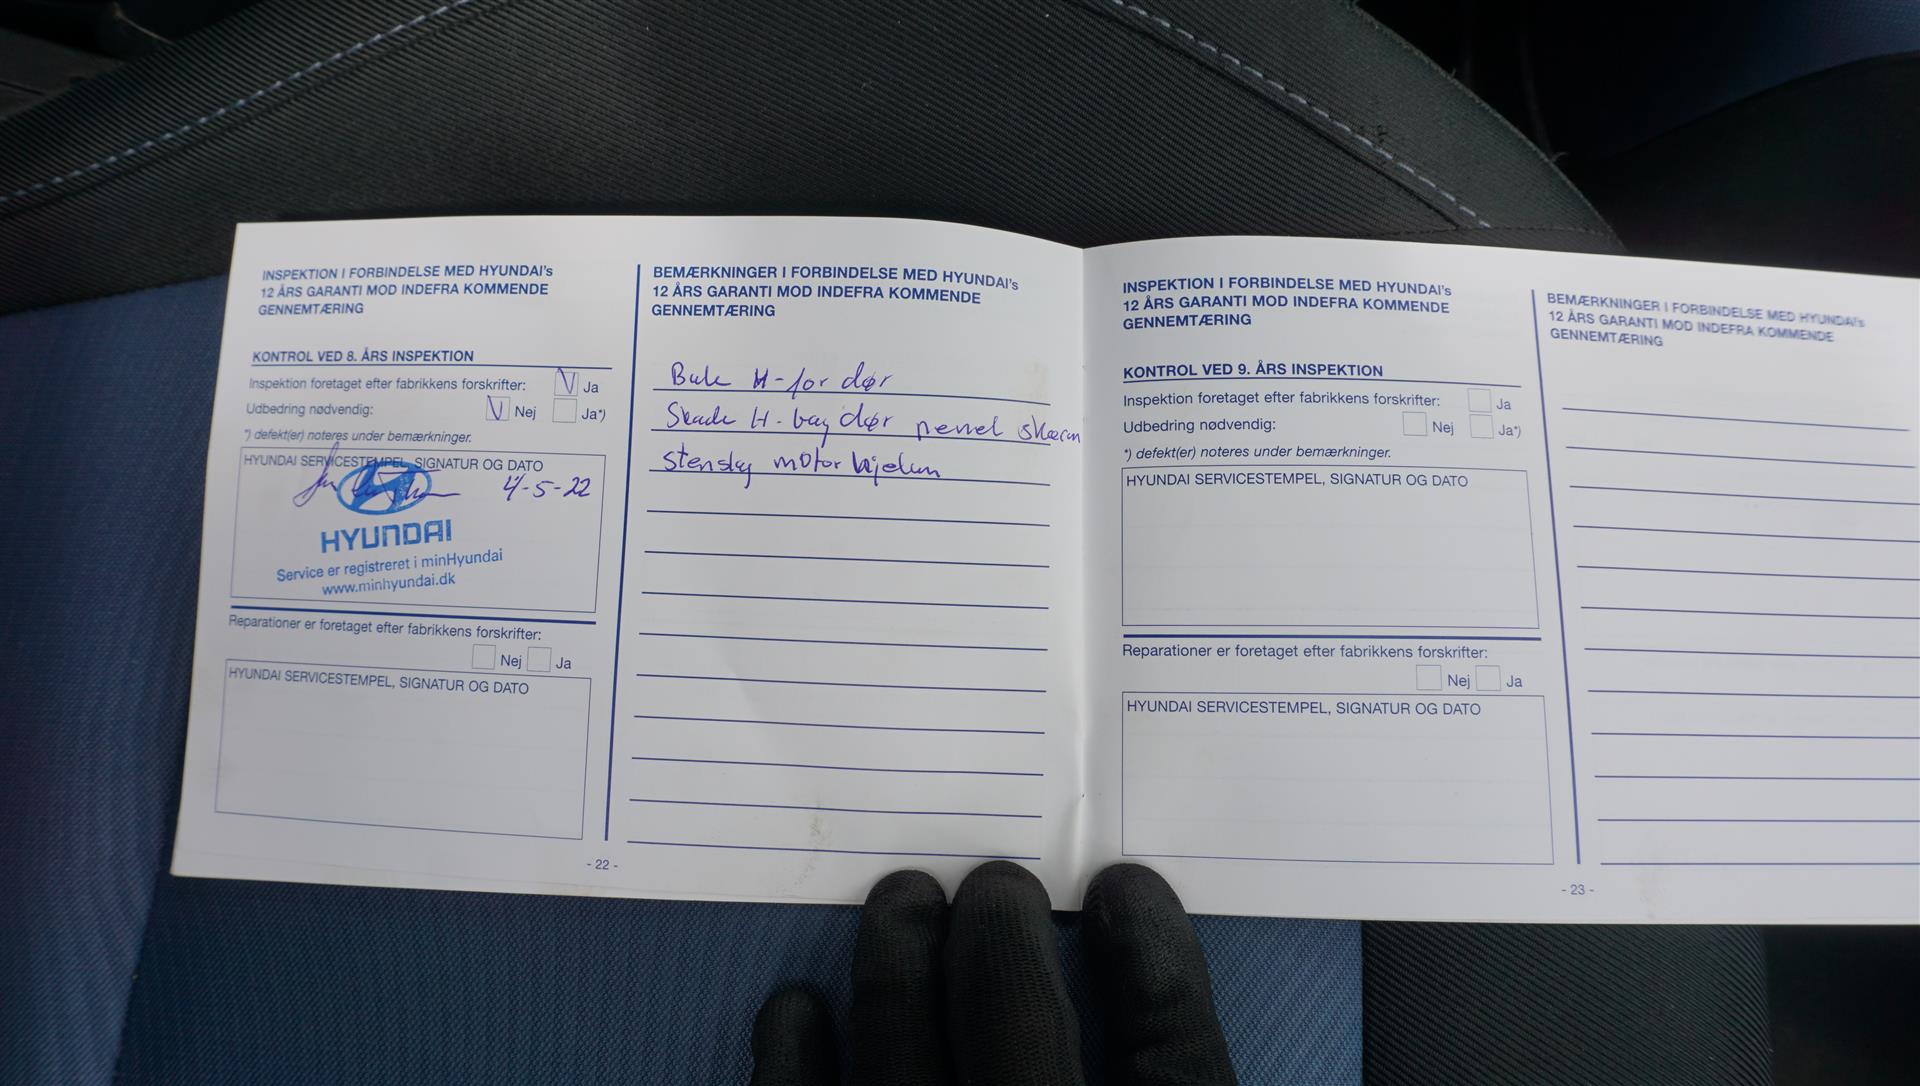 INSPEKTION I FORBINDELSE MED HYUNDAI's
12 ÅRS GARANTI MOD INDEFRA KOMMENDE
GENNEMTÆRING
KONTROL VED 8. ÅRS INSPEKTION
Inspektion foretaget efter fabrikkens forskrifter: V Ja
Udbedring nødvendig: V Nej Ja*)
*) defekt(er) noteres under bemærkninger.
HYUNDAI SERVICESTEMPEL, SIGNATUR OG DATO
4-5-22
HYUNDAI
Service er registreret i minHyundai
www.minhyundai.dk
Reparationer er foretaget efter fabrikkens forskrifter:
Nej Ja
HYUNDAI SERVICESTEMPEL, SIGNATUR OG DATO
- 22 -
BEMÆRKNINGER I FORBINDELSE MED HYUNDAI's
12 ÅRS GARANTI MOD INDEFRA KOMMENDE
GENNEMTÆRING
Bule H-for dør
Skade H-bag dør skærm
stenslag motor hjelm
INSPEKTION I FORBINDELSE MED HYUNDAI's
12 ÅRS GARANTI MOD INDEFRA KOMMENDE
GENNEMTÆRING
KONTROL VED 9. ÅRS INSPEKTION
Inspektion foretaget efter fabrikkens forskrifter: Ja
Udbedring nødvendig: Nej Ja*)
*) defekt(er) noteres under bemærkninger.
HYUNDAI SERVICESTEMPEL, SIGNATUR OG DATO
Reparationer er foretaget efter fabrikkens forskrifter:
Nej Ja
HYUNDAI SERVICESTEMPEL, SIGNATUR OG DATO
- 23 -
BEMÆRKNINGER I FORBINDELSE MED HYUNDAI's
12 ÅRS GARANTI MOD INDEFRA KOMMENDE
GENNEMTÆRING